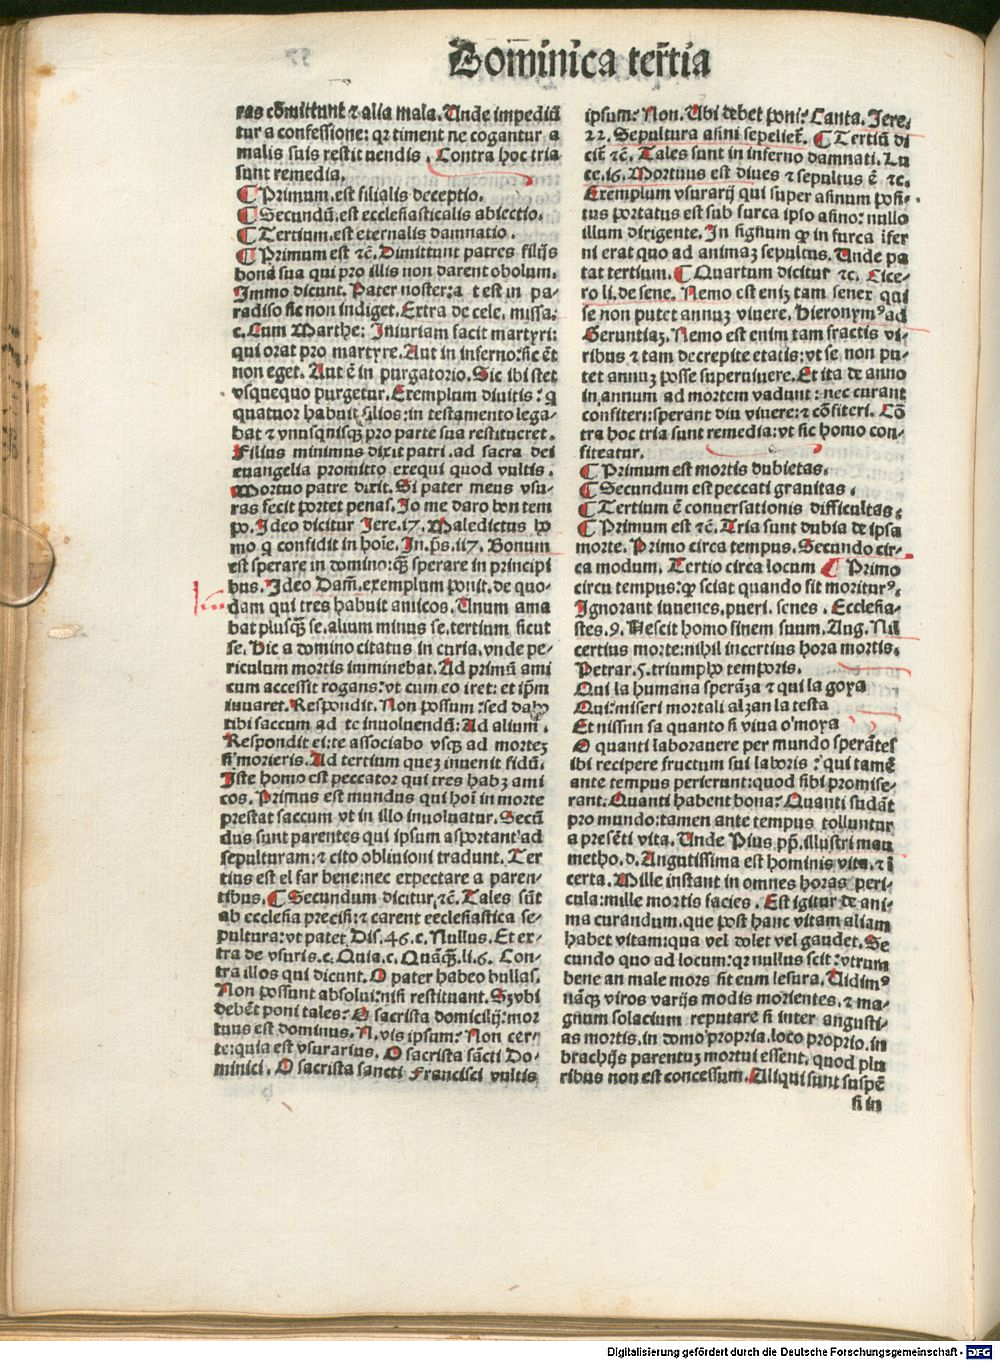 Dom̄inica tertia
ras cōmittunt ⁊ alia mala. Unde impediū
tur a confessione: qꝛ timent ne cogantur a
malis suis restituendis. Contra hoc tria
sunt remedia.
¶ Primum. est filialis deceptio.
¶ Secundū. est ecclesiasticalis abiectio.
¶ Tertium. est eternalis damnatio.
¶ Primum est ⁊c̄. Dimittunt patres filijs
bona sua qui pro illis non darent obolum.
Immo dicunt. Pater noster: aut est in pa-
radiso sic non indiget. Extra de cele. missa.
c. Cum Marthe: Iniuriam facit martyri:
qui orat pro martyre. Aut in inferno: sic ēt
non eget. Aut ē in purgatorio. Sic ibi stet
vsquequo purgetur. Exemplum diuitis: q̄
quatuor habuit filios: in testamento lega-
bat ⁊ vnusquisqꝫ pro parte sua restitueret.
Filius minimus dixit patri. ad sacra dei
euangelia promitto exequi quod vultis.
Mortuo patre dixit. Si pater meus vsu-
ras fecit portet penas. Io me daro bon tem
po. Ideo dicitur Iere. 17. Maledictus ho
mo q̄ confidit in hoīe. In. p̄s. 117. Bonum
est sperare in domino: qꝫ̄ sperare in principi
bus. Ideo Dam̄. exemplum ponit. de quo-
dam qui tres habuit amicos. Unum ama
bat plusqꝫ̄ se. alium minus se. tertium sicut
se. Hic a domino citatus in curia. vnde pe-
riculum mortis imminebat. Ad primū ami
cum accessit rogans: vt cum eo iret: et ip̄m
iuuaret. Respondit. Non possum: sed dabo
tibi saccum ad te inuoluendū: Ad alium.
Respondit ei: te associabo vsqꝫ ad mortēꝫ
si morieris. Ad tertium queꝫ inuenit fidū.
Iste homo est peccator qui tres habꝫ ami
cos. Primus est mundus qui hoī in morte
prestat saccum vt in illo inuoluatur. Secū
dus sunt parentes qui ipsum asportant ad
sepulturam: ⁊ cito obliuioni tradunt. Ter
tius est el far bene: nec expectare a paren-
tibus. ¶ Secundum dicitur ⁊c̄. Tales sūt
ab ecclesia precisi: ⁊ carent ecclesiastica se-
pultura: vt patet Dis. 46. c. Nullus. Et ex-
tra de vsuris. c. Quia. c. Quāqꝫ. li. 6. Con-
tra illos qui dicunt. O pater habeo bullas.
Non possunt absolui: nisi restituant. Sꝫ vbi
debēt poni tales? O sacrista domicilij: mor
tuus est dominus. N. vis ipsum? Non cer-
te: quia est vsurarius. O sacrista sācti Do-
minici. O sacrista sancti Francisci vultis
ipsum? Non. Ubi debet poni? Canta. Iere.
22. Sepultura asini sepeliet̄. ¶ Tertiū di
cit̄ ⁊c̄. Tales sunt in inferno damnati. Lu
ce. 16. Mortuus est diues ⁊ sepultus ē ⁊c.
Exemplum vsurarij qui super asinum posi-
tus portatus est sub furca ipso asino: nullo
illum dirigente. In signum qꝫ in furca īfer
ni erat quo ad animaꝫ sepultus. Unde pa
tat tertium. ¶ Quartum dicitur ⁊c. Cice-
ro li. de sene. Nemo est eniꝫ tam senex qui
se non putet annuꝫ viuere. Hieronymꝰ ad
Geruntiaꝫ. Nemo est enim tam fractis vi-
ribus ⁊ tam decrepite etatis: vt se non pu-
tet annuꝫ posse superuiuere. Et ita de anno
in annum ad mortem vadunt: nec curant
confiteri: sperant diu viuere: ⁊ cōfiteri. Cō
tra hoc tria sunt remedia: vt sic homo con-
fiteatur.
¶ Primum est mortis dubietas.
¶ Secundum est peccati grauitas.
¶ Tertium ē conuersationis difficultas.
¶ Primum est ⁊c̄. Tria sunt dubia de ipsa
morte. Primo circa tempus. Secundo cir-
ca modum. Tertio circa locum ¶ Primo
circu tempus: qꝫ sciat quando sit moriturꝰ.
Ignorant iuuenes. pueri. senes. Ecclesia-
stes. 9. Nescit homo finem suum. Aug. Nil
certius morte: nihil incertius hora mortis.
Petrar. 5. triumpho temporis.
Qui la humana sperāza ⁊ qui la goya
Qui: miseri mortali alzan la testa
Et nissun sa quanto si viua o' moya
O quanti laborauere per mundo sperātes
ibi recipere fructum sui laboris: qui tamē
ante tempus perierunt: quod sibi promise-
rant. Quanti habent bona? Quanti sudāt
pro mundo: tamen ante tempus tolluntur
a presēti vita. Unde Pius pp̄. illustri mau
metho. d. Angutissima est hominis vita. ⁊ ī
certa. Mille instant in omnes horas peri-
cula: mille mortis facies. Est igitur de ani-
ma curandum. que post hanc vitam aliam
habet vitam: qua vel dolet vel gaudet. Se
cundo quo ad locum: qꝛ nullus scit: vtrum
bene an male mors sit eum lesura. Uidimꝰ
nāqꝫ viros varijs modis morientes. ⁊ ma-
gnum solacium reputare si inter angusti-
as mortis. in domo propria. loco proprio. in
brachijs parentuꝫ mortui essent. quod plu
ribus non est concessum. Aliqui sunt suspē
si in
Digitalisierung gefördert durch die Deutsche Forschungsgemeinschaft - DFG